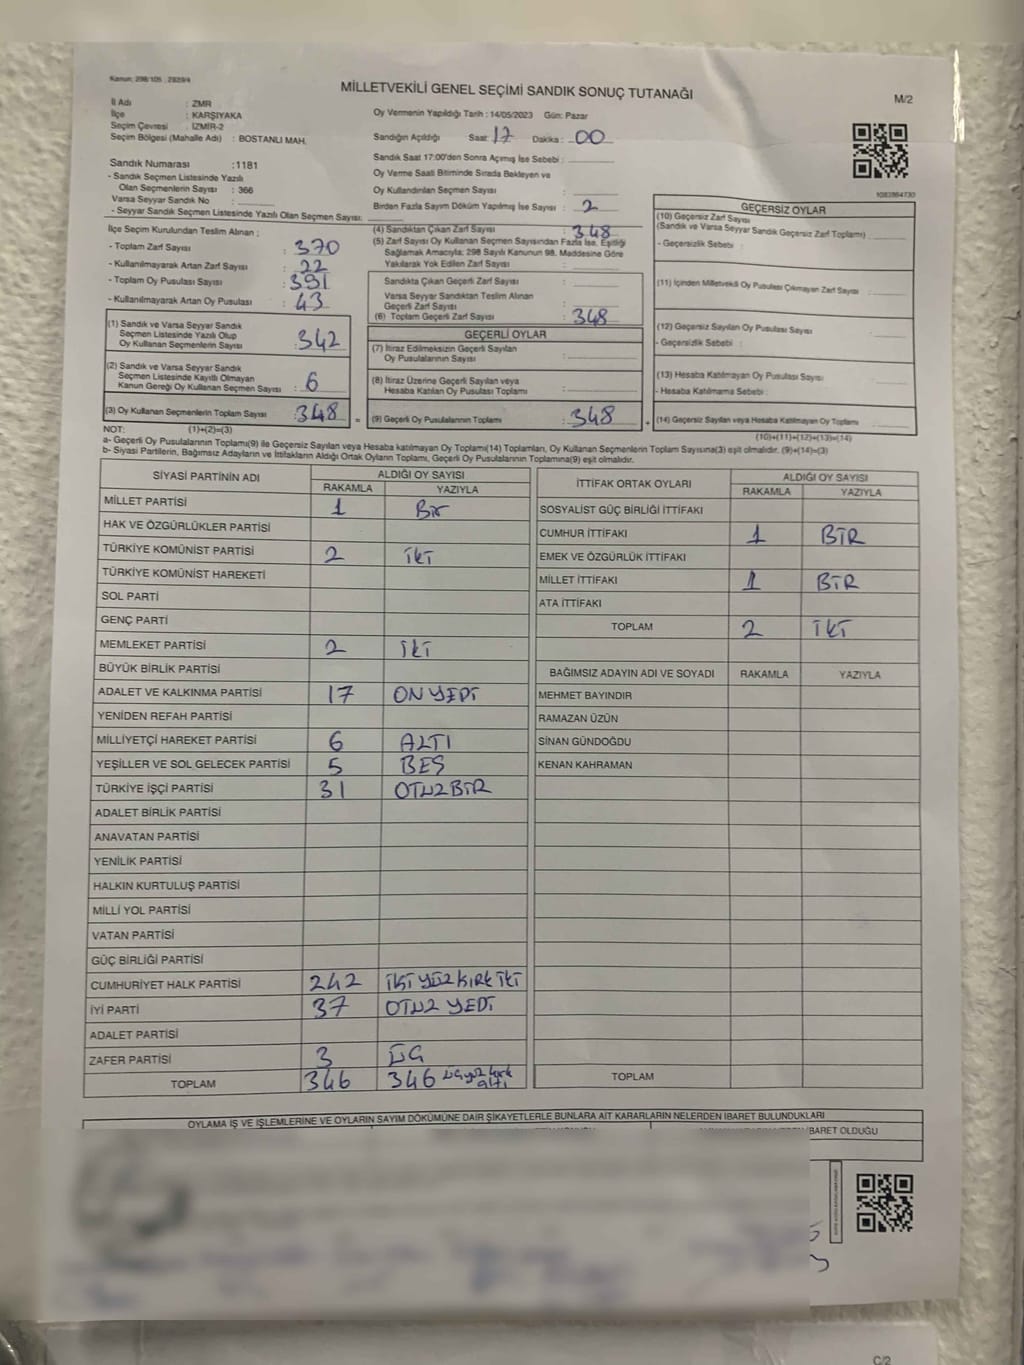 Kanun: 298/105 : 2839/4
MİLLETVEKİLİ GENEL SEÇİMİ SANDIK SONUÇ TUTANAĞI
M/2
İl Adı : ZMR
İlçe : KARŞIYAKA
Seçim Çevresi : İZMİR-2
Seçim Bölgesi (Mahalle Adı) : BOSTANLI MAH.
Sandık Numarası :1181
- Sandık Seçmen Listesinde Yazılı
Olan Seçmenlerin Sayısı : 366
Varsa Seyyar Sandık No :
- Seyyar Sandık Seçmen Listesinde Yazılı Olan Seçmen Sayısı:
Oy Vermenin Yapıldığı Tarih : 14/05/2023 Gün: Pazar
Sandığın Açıldığı Saat: 17 Dakika : 00
Sandık Saat 17:00'den Sonra Açımış İse Sebebi :
Oy Verme Saati Bitiminde Sırada Bekleyen ve
Oy Kullandırılan Seçmen Sayısı :
Birden Fazla Sayım Döküm Yapılmış İse Sayısı : 2
İlçe Seçim Kurulundan Teslim Alınan ;
- Toplam Zarf Sayısı : 370
- Kullanılmayarak Artan Zarf Sayısı : 22
- Toplam Oy Pusulası Sayısı : 391
- Kullanılmayarak Artan Oy Pusulası : 43
(1) Sandık ve Varsa Seyyar Sandık
Seçmen Listesinde Yazılı Olup
Oy Kullanan Seçmenlerin Sayısı : 342
(2) Sandık ve Varsa Seyyar Sandık
Seçmen Listesinde Kayıtlı Olmayan
Kanun Gereği Oy Kullanan Seçmen Sayısı : 6
(3) Oy Kullanan Seçmenlerin Toplam Sayısı : 348
(4) Sandıktan Çıkan Zarf Sayısı : 348
(5) Zarf Sayısı Oy Kullanan Seçmen Sayısından Fazla İse, Eşitliği
Sağlamak Amacıyla; 298 Sayılı Kanunun 98. Maddesine Göre
Yakılarak Yok Edilen Zarf Sayısı :
Sandıkta Çıkan Geçerli Zarf Sayısı :
Varsa Seyyar Sandıktan Teslim Alınan
Geçerli Zarf Sayısı :
(6) Toplam Geçerli Zarf Sayısı : 348
GEÇERLİ OYLAR
(7) İtiraz Edilmeksizin Geçerli Sayılan
Oy Pusulalarının Sayısı :
(8) İtiraz Üzerine Geçerli Sayılan veya
Hesaba Katılan Oy Pusulası Toplamı :
= (9) Geçerli Oy Pusulalarının Toplamı : 348
1082864730
GEÇERSİZ OYLAR
(10) Geçersiz Zarf Sayısı
(Sandık ve Varsa Seyyar Sandık Geçersiz Zarf Toplamı) :
- Geçersizlik Sebebi :
(11) İçinden Milletvekili Oy Pusulası Çıkmayan Zarf Sayısı :
(12) Geçersiz Sayılan Oy Pusulası Sayısı :
- Geçersizlik Sebebi :
(13) Hesaba Katılmayan Oy Pusulası Sayısı :
- Hesaba Katılmama Sebebi :
+ (14) Geçersiz Sayılan veya Hesaba Katılmayan Oy Toplamı :
NOT: (1)+(2)=(3)
(10)+(11)+(12)+(13)=(14)
a- Geçerli Oy Pusulalarının Toplamı(9) ile Geçersiz Sayılan veya Hesaba katılmayan Oy Toplamı(14) Toplamları, Oy Kullanan Seçmenlerin Toplam Sayısına(3) eşit olmalıdır. (9)+(14)=(3)
b- Siyasi Partilerin, Bağımsız Adayların ve İttifakların Aldığı Ortak Oyların Toplamı, Geçerli Oy Pusulalarının Toplamına(9) eşit olmalıdır.
SİYASİ PARTİNİN ADI ALDIĞI OY SAYISI
RAKAMLA YAZIYLA
MİLLET PARTİSİ 1 Bir
HAK VE ÖZGÜRLÜKLER PARTİSİ
TÜRKİYE KOMÜNİST PARTİSİ 2 İKİ
TÜRKİYE KOMÜNİST HAREKETİ
SOL PARTİ
GENÇ PARTİ
MEMLEKET PARTİSİ 2 İKİ
BÜYÜK BİRLİK PARTİSİ
ADALET VE KALKINMA PARTİSİ 17 ON YEDİ
YENİDEN REFAH PARTİSİ
MİLLİYETÇİ HAREKET PARTİSİ 6 ALTI
YEŞİLLER VE SOL GELECEK PARTİSİ 5 BEŞ
TÜRKİYE İŞÇİ PARTİSİ 31 OTUZBİR
ADALET BİRLİK PARTİSİ
ANAVATAN PARTİSİ
YENİLİK PARTİSİ
HALKIN KURTULUŞ PARTİSİ
MİLLİ YOL PARTİSİ
VATAN PARTİSİ
GÜÇ BİRLİĞİ PARTİSİ
CUMHURİYET HALK PARTİSİ 242 İKİ YÜZ KIRK İKİ
İYİ PARTİ 37 OTUZ YEDİ
ADALET PARTİSİ
ZAFER PARTİSİ 3 ÜÇ
TOPLAM 346 346 üçyüz kırk altı
İTTİFAK ORTAK OYLARI ALDIĞI OY SAYISI
RAKAMLA YAZIYLA
SOSYALİST GÜÇ BİRLİĞİ İTTİFAKI
CUMHUR İTTİFAKI 1 BİR
EMEK VE ÖZGÜRLÜK İTTİFAKI
MİLLET İTTİFAKI 1 BİR
ATA İTTİFAKI
TOPLAM 2 İKİ
BAĞIMSIZ ADAYIN ADI VE SOYADI RAKAMLA YAZIYLA
MEHMET BAYINDIR
RAMAZAN ÜZÜN
SİNAN GÜNDOĞDU
KENAN KAHRAMAN
TOPLAM
OYLAMA İŞ VE İŞLEMLERİNE VE OYLARIN SAYIM DÖKÜMÜNE DAİR ŞİKAYETLERLE BUNLARA AİT KARARLARIN NELERDEN İBARET BULUNDUKLARI
BARET OLDUĞU
C/2